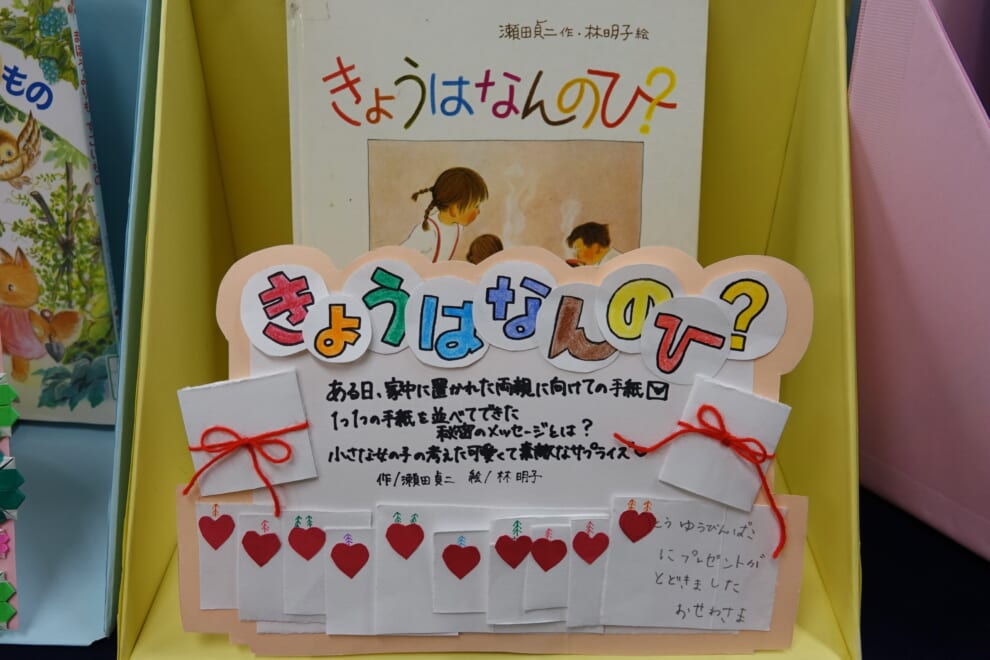 もの
瀬田貞二 作・林明子 絵
きょうはなんのひ?
きょうはなんのひ?
ある日、家中に置かれた両親に向けての手紙
1つ1つの手紙を並べてできた
秘密のメッセージとは?
小さな女の子の考えた可愛くて素敵なサプライズ♡
作/瀬田貞二 絵/林明子
とう ゆうびんばこ
にプレゼントが
とどきました
おせわさま